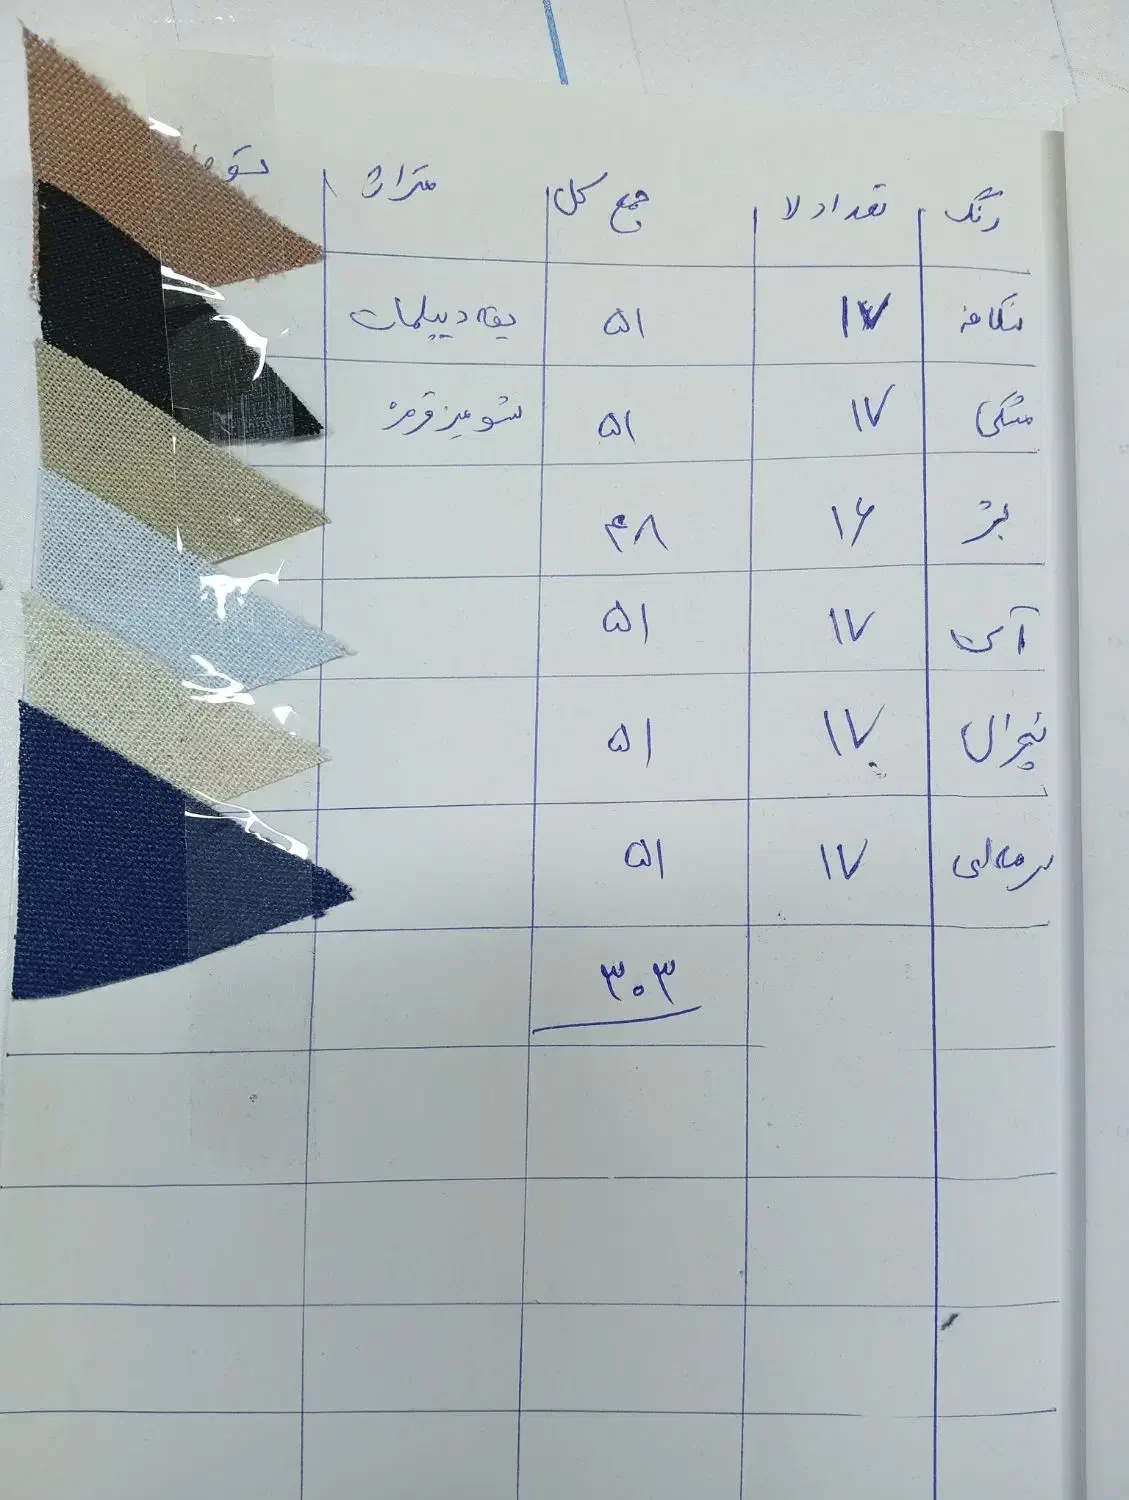 رنگ تعداد لا جمع کل متراژ
نسکافه ۱۷ ۵۱ یقه دیپلمات
مشکی ۱۷ ۵۱ شومیز قرمز
بژ ۱۶ ۴۸
آبی ۱۷ ۵۱
نچرال ۱۷ ۵۱
سرمه‌ای ۱۷ ۵۱
۳۰۳